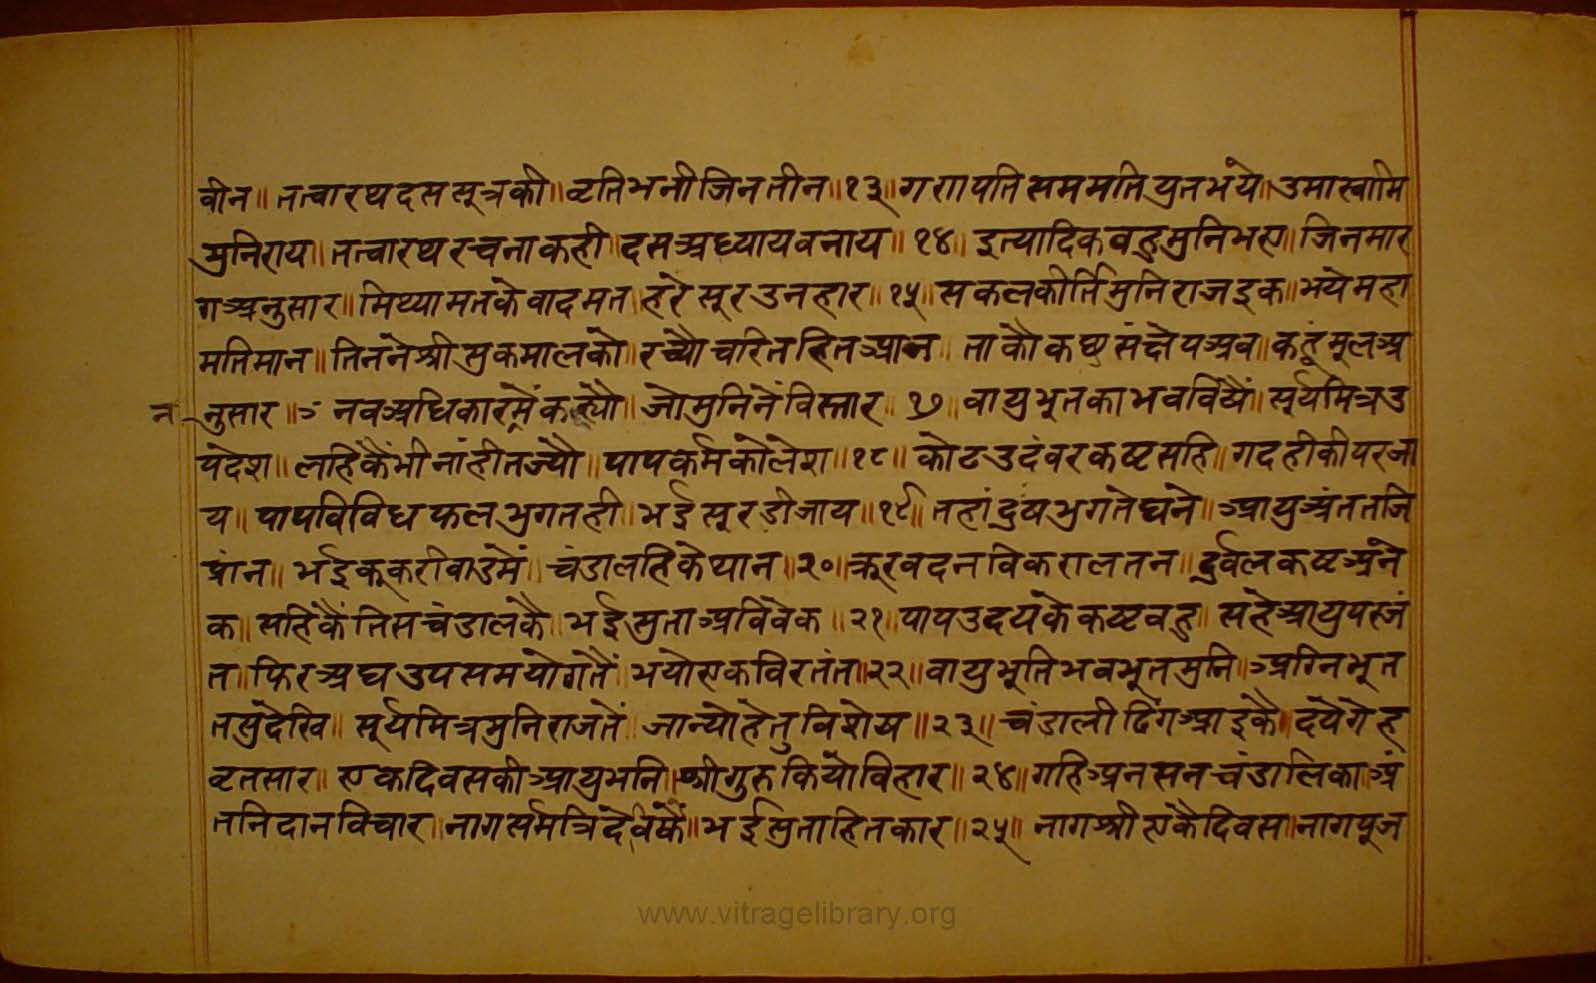 वीन॥ तत्वारथदससूत्रकी॥ वृतिभनीजिनतीन॥१३॥ गणपतिसममतियुतभये॥ उमास्वामि
मुनिराय॥ तत्वारथरचनाकही॥ दसअध्यायवनाय॥१४॥ इत्यादिकबहुमुनिभए॥ जिनमार
गअनुसार॥ मिथ्यामतकेवादमत॥ हरेसूरउनहार॥१५॥ सकलकीर्तिमुनिराजइक॥ भयेमहा
मतिमान॥ तिननेश्रीसुकमालको॥ रच्यौचरितहितआन॥ ताकौकछुसंक्षेपअव॥ कहूंमूलअ
न
नुसार॥ नवअधिकारमैंकह्यौ॥ जोमुनिनेंविस्तार॥१७॥ वायुभूतकाभवविषैं॥ सूर्यमित्रउ
पदेश॥ लहिकैंभीनांहीतज्यौ॥ पापकर्मकोलेश॥१८॥ कोढउदंवरकष्टसहि॥ गदहीकीपरजा
य॥ पापविविधफलभुगतही॥ भईसूरडीजाय॥१९॥ तहांदुषभुगतेघने॥ आयुअंततजि
प्रांन॥ भईकूकरीवाडमें॥ चंडालहिकेथान॥२०॥ क्रूरवदनविकरालतन॥ दुर्वलकष्टअने
क॥ सहिकैंतिसचंडालकै॥ भईसुताअविवेक॥२१॥ पापउदयकेकष्टबहु॥ सहेआयुपरजं
त॥ फिरअघउपसमयोगतैं॥ भयोएकविरतंत॥२२॥ वायुभूतिभवभूतमुनि॥ अग्निभूत
तसुदेखि॥ सूर्यमित्रमुनिराजतें॥ जान्योहेतुविशेष॥२३॥ चंडालीढिगआइकै॥ दयेगेह
वृतसार॥ एकदिवसकीआयुभनि॥ श्रीगुरुकियोविहार॥२४॥ गहिअनसनचंडालिका॥ अं
तनिदानविचार॥ नागसर्मत्रिदेविकैं॥ भईसुताहितकार॥२५॥ नागश्रीएकैदिवस॥ नागपूज
www.vitragelibrary.org